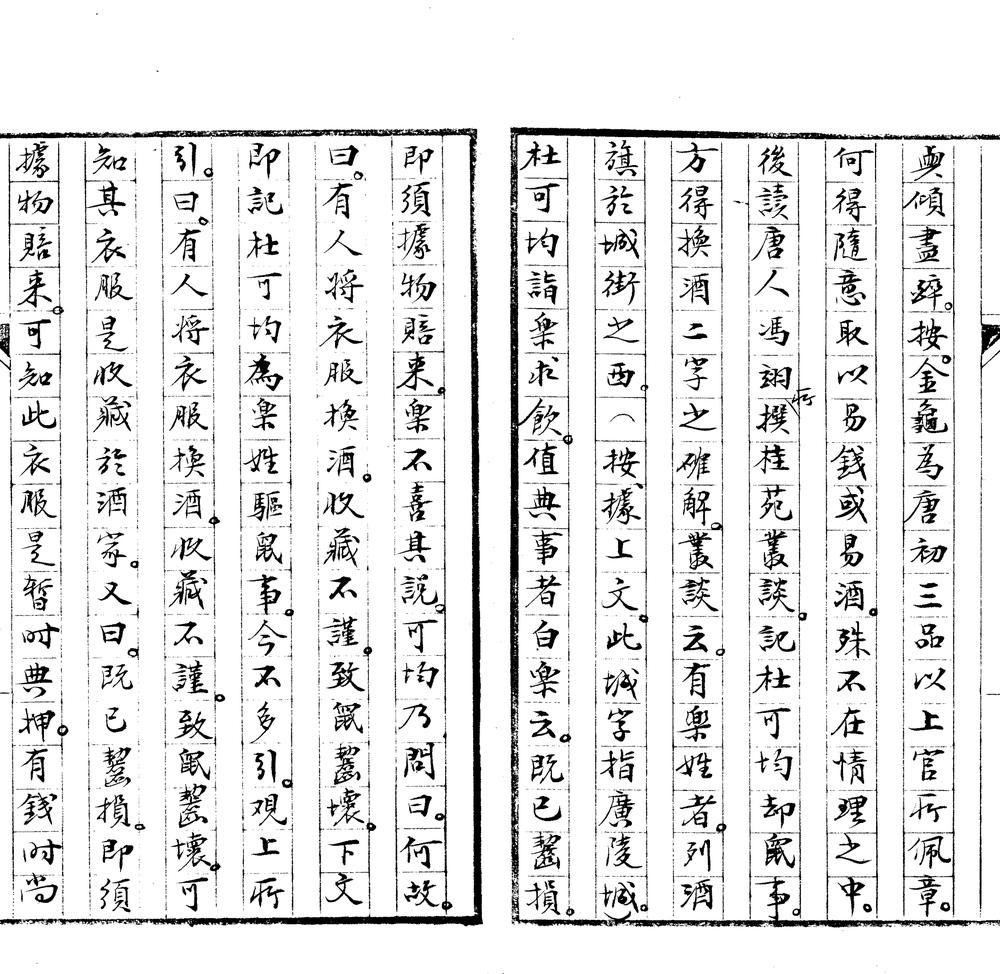 與傾盡醉。按。金龜為唐初三品以上官所佩章。
何得隨意取以易錢或易酒。殊不在情理之中。
後讀唐人馮翊所撰桂苑叢談。記杜可均却鼠事。
方得換酒二字之確解。叢談云。有樂姓者。列酒
旗於城街之西。（按據上文。此城字指廣陵城）
杜可均詣樂求飲。值典事者白樂云。既已齧損。
即須據物賠来。樂不喜其說。可均乃問曰。何故。
曰。有人將衣服換酒。收藏不謹。致鼠齧壞。下文
即記杜可均為樂姓驅鼠事。今不多引。觀上所
引。曰。有人將衣服換酒。收藏不謹。致鼠齧壞。可
知其衣服是收藏於酒家。又曰。既已齧損。即須
據物賠来。可知此衣服是暫时典押。有錢时尚